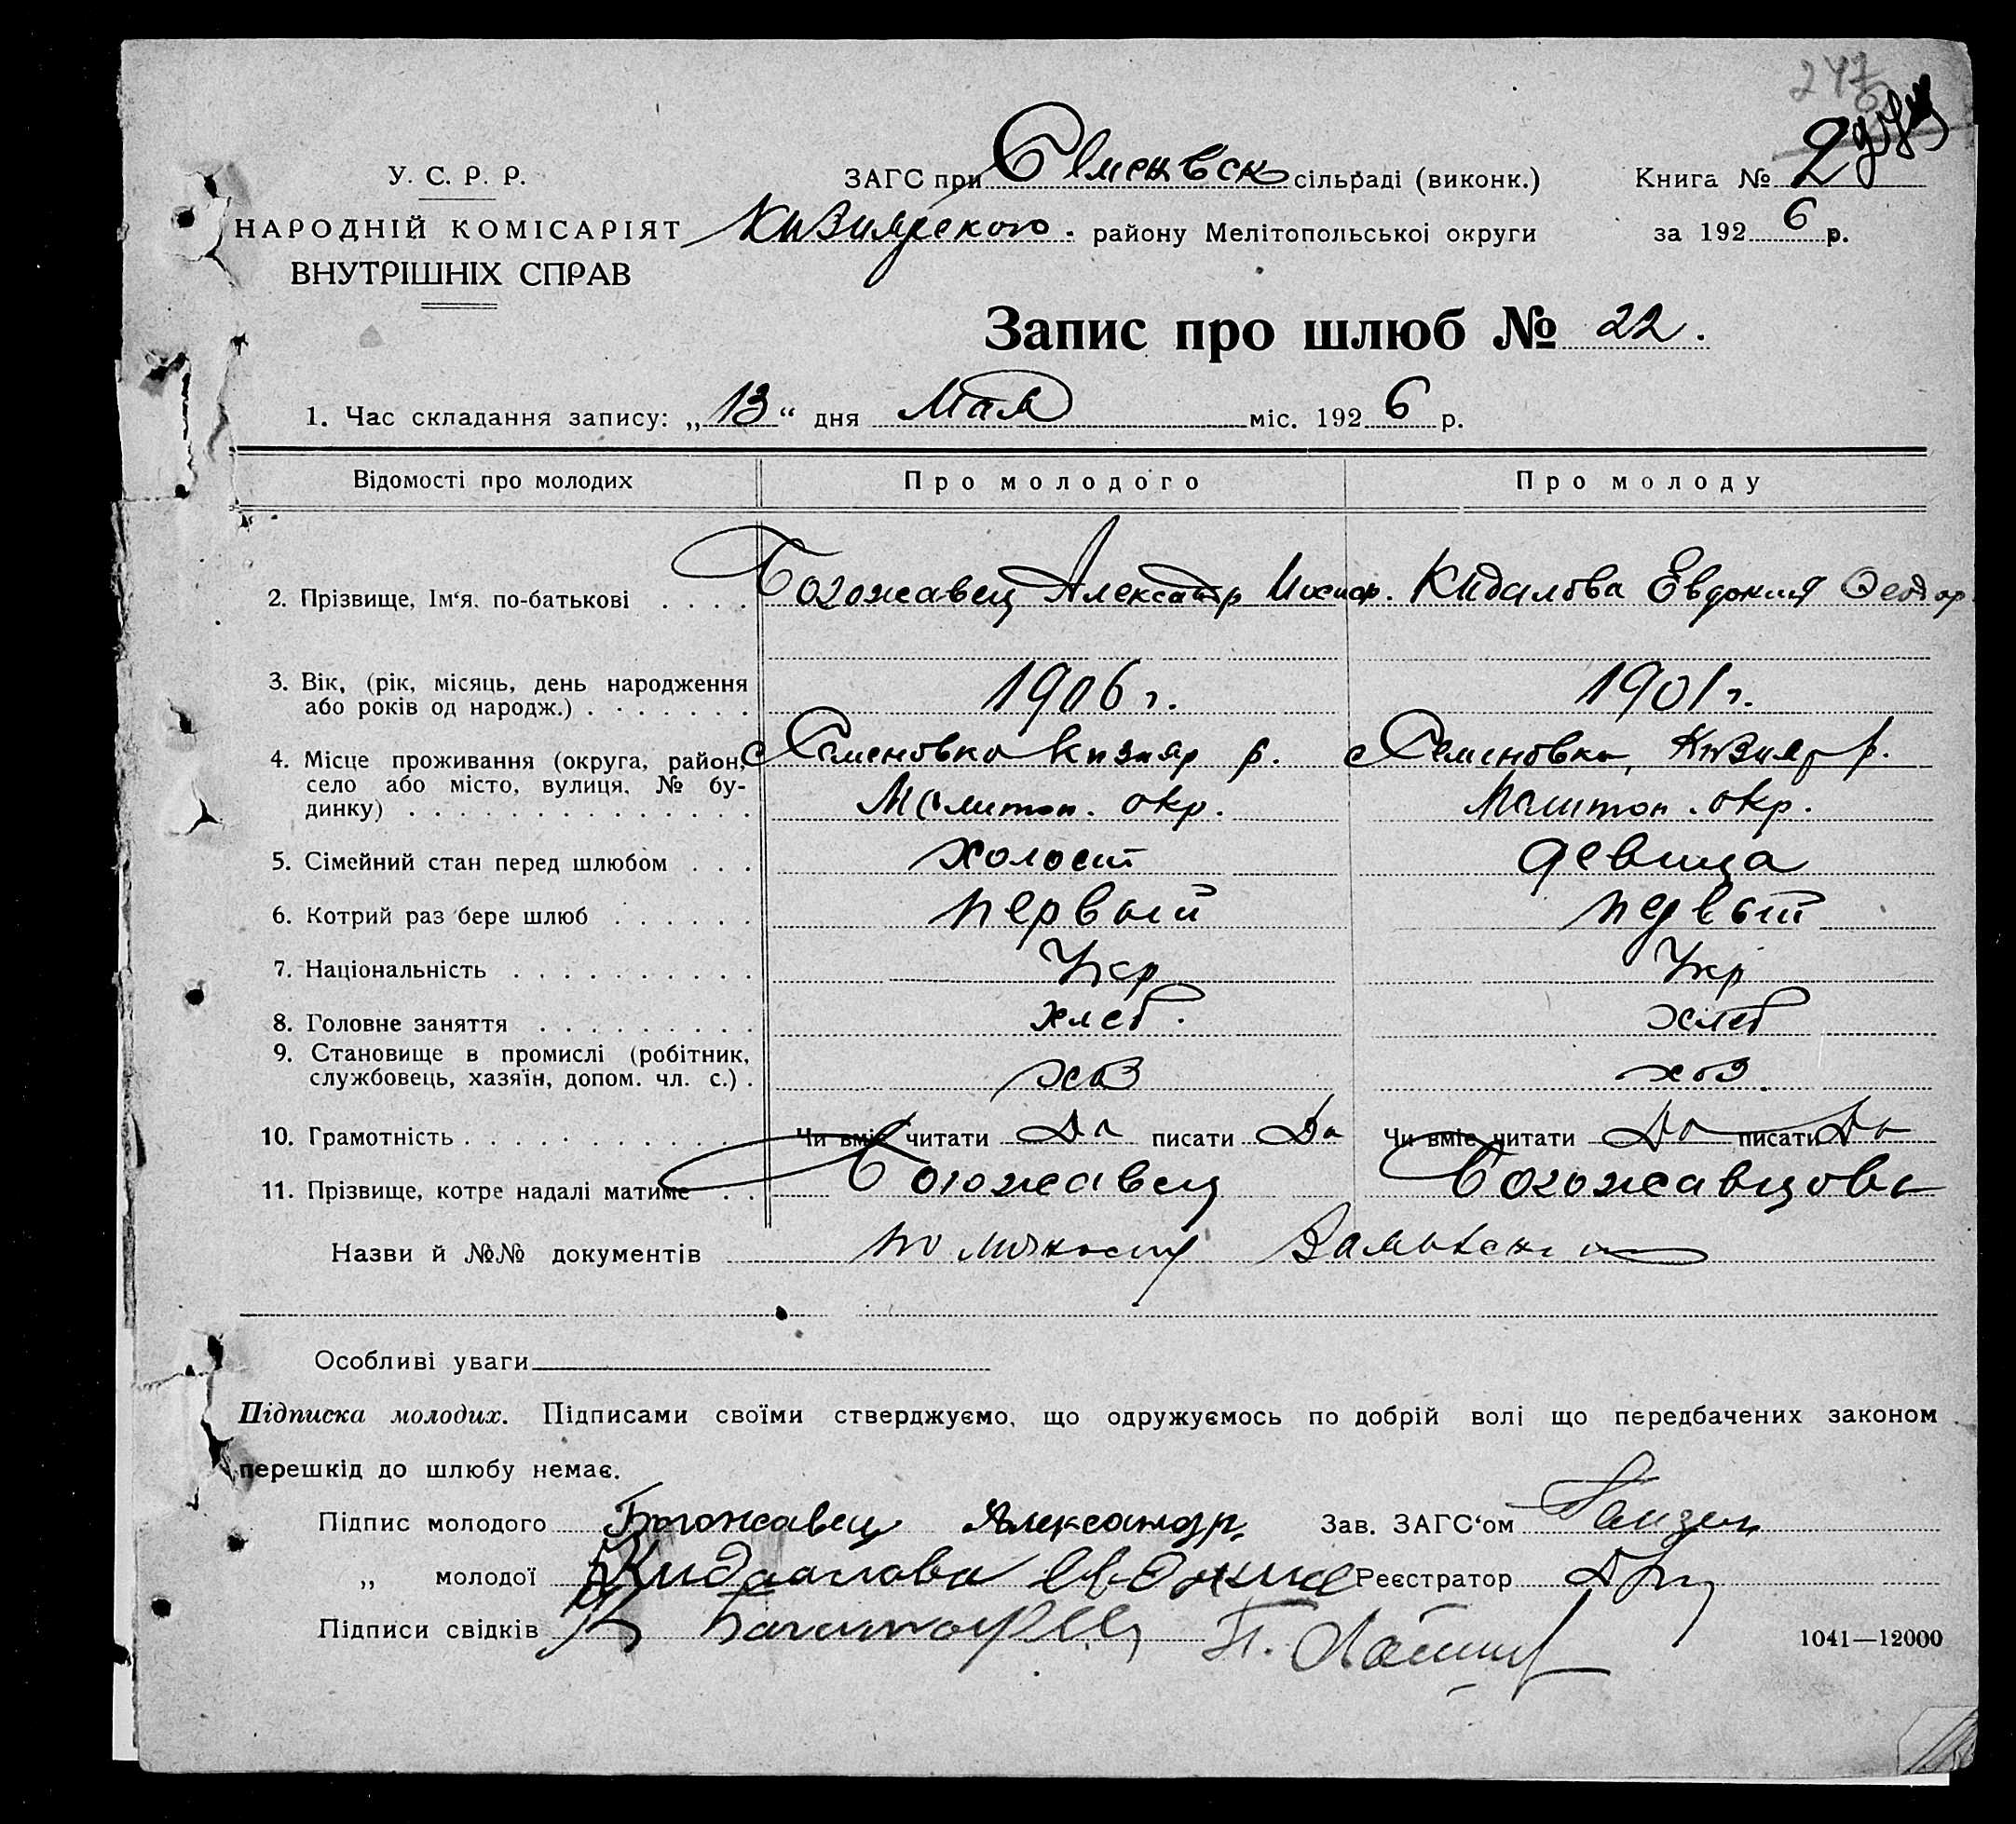 247
У. С. Р. Р.
НАРОДНІЙ КОМІСАРІЯТ
ВНУТРІШНІХ СПРАВ
ЗАГС при Семеновск сільраді (виконк.)
Кизиярского району Мелітопольської округи
Книга № 2
за 1926 р.
Запис про шлюб № 22.
1. Час складання запису: „13“ дня Мая міс. 1926 р.
Відомості про молодих Про молодого Про молоду
2. Прізвище, Ім‘я, по-батькові . . . . Богожавец Александр Иосиф. Кидалова Евдокия Феодор
3. Вік, (рік, місяць, день народження
або років од народж.) . . . . . . . 1906 г. 1901 г.
4. Місце проживання (округа, район, с Семеновка Кизияр р. с Семеновка, Кизияр р.
село або місто, вулиця, № бу-
динку) . . . . . . . . . . . . . . Мелитоп. окр. Мелитоп. окр.
5. Сімейний стан перед шлюбом . . . холост девица
6. Котрий раз бере шлюб . . . . . . первый первый
7. Національність . . . . . . . . . . Укр Укр
8. Головне заняття . . . . . . . . . хлеб. хлеб
9. Становище в промислі (робітник,
службовець, хазяїн, допом. чл. с.) . хоз хоз.
10. Грамотність . . . . . . . . . . . Чи вміє читати Да писати Да Чи вміє читати Да писати Да
11. Прізвище, котре надалі матиме . . Богожавец Богожавцова
Назви й №№ документів по личности
Особливі уваги
Підписка молодих. Підписами своїми стверджуємо, що одружуємось по добрій волі що передбачених законом
перешкід до шлюбу немає.
Підпис молодого Богожавец Александр. Зав. ЗАГС‘ом
„ молодої Кидалова Евдокия Реєстратор
Підписи свідків П.
1041—12000